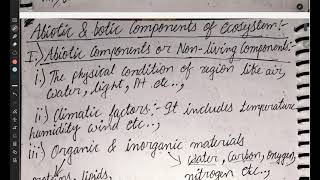 Abiotic & botic Components of ecosystem:-
I.) Abiotic Components or Non-living Component:-
i) The physical condition of region like air,
water, light, PH etc..,
ii) Climatic factors:- It includes temperature
humidity wind etc..,
iii) Organic & inorganic materials
water, Carbon, oxygen,
proteins, lipids, nitrogen etc..,